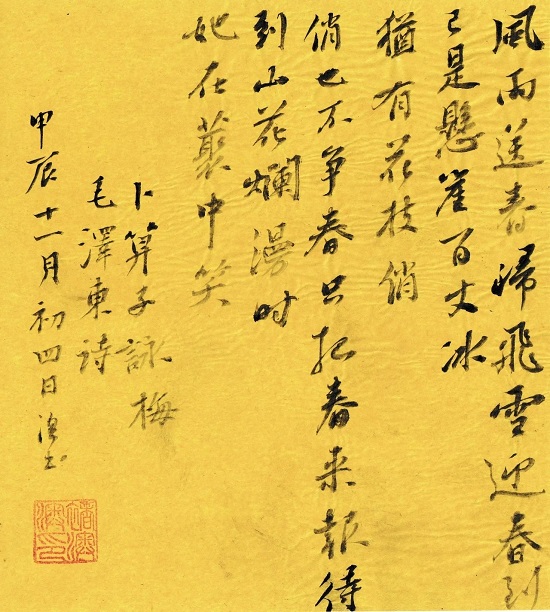 風雨送春歸飛雪迎春到
已是懸崖百丈冰
猶有花枝俏
俏也不争春只把春来報待
到山花爛漫时
她在叢中笑
卜算子詠梅
毛澤東诗
甲辰十一月初四日书